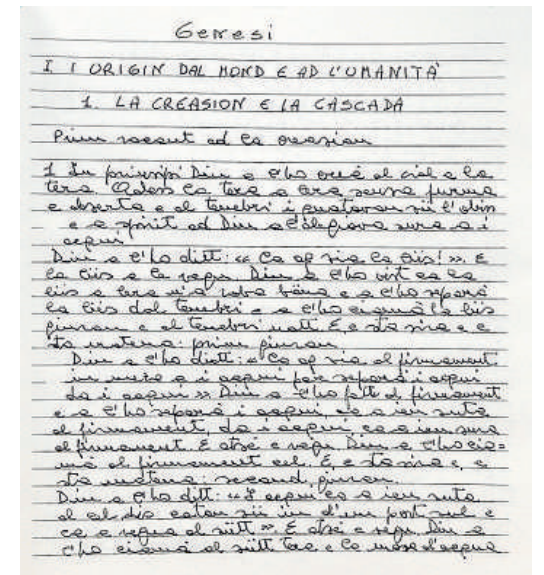 Genesi
I I ORIGIN DAL MOND E AD L'UMANITÀ
1. LA CREASION E LA CASCADA
Prim racout ad la creasion
1 In prinsipi Diu a l'ho creà al ciel e la
tera. Adess la tera a era sensa furma
e deserta e al tenebri i quatavan sü l'abiss
e a spirit ad Diu a sura a i
acqui
Diu a l'ho ditt: « Ca ag sia la lüs! ». E
la lüs a la vegn. Diu a l'ho vist ca la
lüs a era n'a roba böna e a l'ho separà
la lüs dal tenebri e a l'ho ciamà la lüs
giuran e al tenebri nott. E e sta sira e e
sta matena: prim giuran.
Diu a l'ho ditt: « Ca ag sia al firmament
in mezz a i acqui par separà i acqui
da i acqui ». Diu a l'ho fatt al firmament
e a l'ho separà i acqui, ca a ien suta
al firmament, da i acqui ca a ien sura
al firmament. E atsé e vegn. Diu a l'ho cia=
mà al firmament cel. E e sta sira e, e
sta matena: second giuran.
Diu a l'ho ditt: « I acqui ca a ien suta
al cel, sü in d'un port sul e
ca a vegna al sütt ». E atsé e vegn. Diu a
l'ho ciamà al sütt tera e la d'acqua